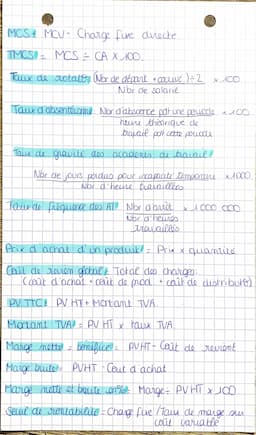 MCS = MCV - Charge fixe directe
TMCS = MCS ÷ CA X 100.
Taux de rotation = (Nbr de départ + arrivé) ÷ 2 x 100
Nbr de salarié
Taux d'absentéisme = Nbr d'absence par une période x 100
heure théorique de
travail par cette période
Taux de gravité des accidents de travail
Nbr de jours perdus pour incapacité temporaire x 1000
Nbr d'heure travaillées
Taux de fréquence des AT = Nbr x 1 000 000
Nbr d'heures
travaillées
Prix d'achat d'un produit = Prix x quantité
Coût de revien global = Total des charges.
(coût d'achat + coût de prod. + coût de distribution)
PV TTC = PV HT + Montant TVA.
Montant TVA = PV HT x taux TVA.
Marge nette = bénéfice = PVHT - Coût de revient
Marge brute = PVHT - Cout d'achat
Marge nette et brute en % = Marge ÷ PVHT x 100
Seuil de rentabilité = Charge fixe / Taux de marge sur
coût variable